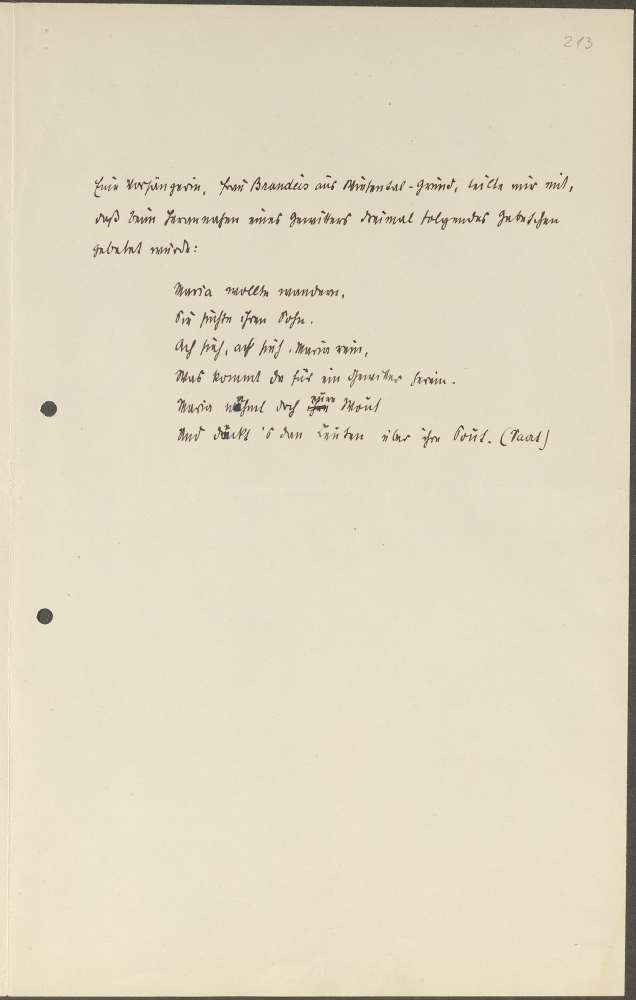 213
Eine Vorsängerin, Frau Brandeis aus Wiesental-Grund, teilte mir mit,
daß beim Herannahen eines Gewitters dreimal folgendes Gebetchen
gebetet wurde:
Maria wollte wandern,
Sie suchte ihren Sohn.
Ach sieh, ach sieh, Maria rein,
Was kommt da für ein Gewitter herein.
Maria nahmt doch Wout
Und däckt 's dan Leuten über ihre Sout. (Saat)